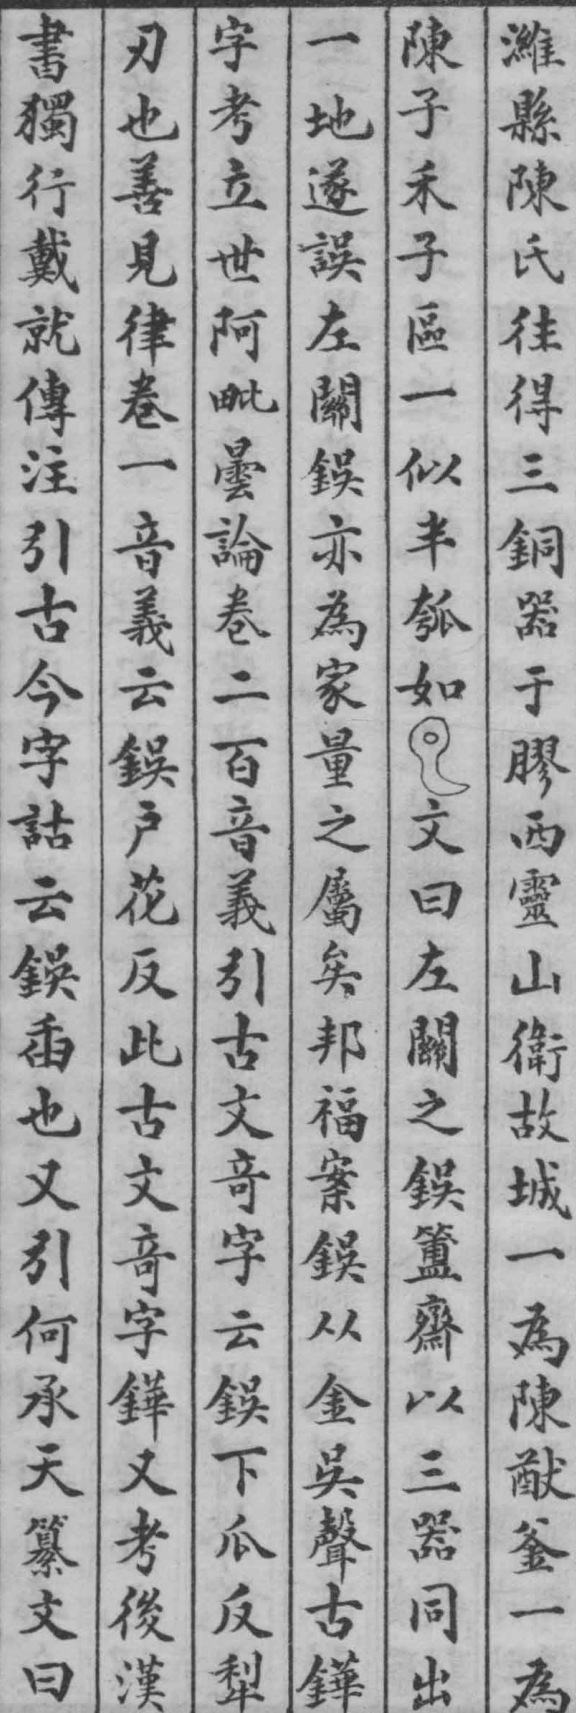 濰縣陳氏往得三銅器于膠西靈山衛故城一為陳猷釜一為
陳子禾子區一似半瓠如文曰左關之鋘簠齋以三器同出
一地遂誤左關鋘亦為家量之屬矣邦福案鋘从金吳聲古鏵
字考立世阿毗曇論卷二百音義引古文奇字云鋘下瓜反犁
刃也善見律卷一音義云鋘户花反此古文奇字鏵又考後漢
書獨行戴就傳注引古今字詁云鋘臿也又引何承天纂文曰